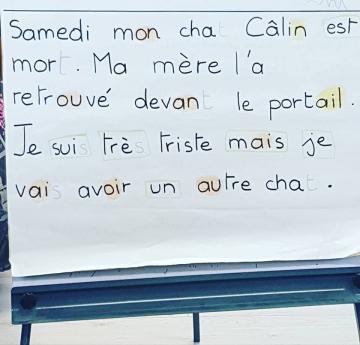 Samedi mon chat Câlin est
mort. Ma mère l'a
retrouvé devant le portail.
Je suis très triste mais je
vais avoir un autre chat.